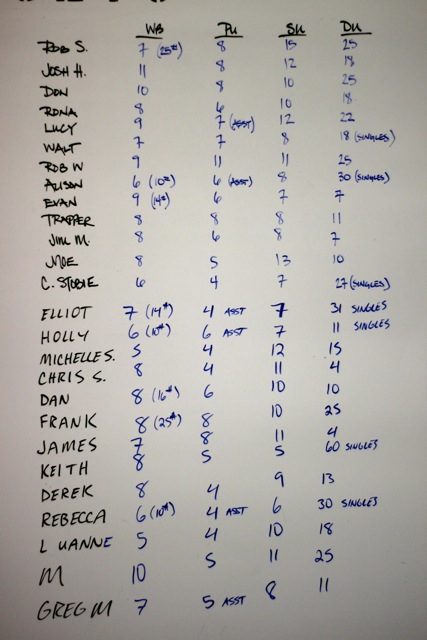 WB PU SU DU
ROB S. 7 (25#) 8 15 25
JOSH H. 11 8 12 18
DON 10 8 10 25
RONA 8 6 10 18
LUCY 9 7 (ASST) 12 22
WALT 7 7 8 18 (SINGLES)
ROB W 9 11 11 25
ALISON 6 (10#) 6 (ASST) 8 30 (SINGLES)
EVAN 9 (14#) 6 7 7
TRAPPER 8 8 8 11
JIM M. 8 6 8 7
MOE 8 5 13 10
C. STOBIE 6 4 7 27 (SINGLES)
ELLIOT 7 (14#) 4 ASST 7 31 SINGLES
HOLLY 6 (10#) 6 ASST 7 11 SINGLES
MICHELLE S. 5 4 12 15
CHRIS S. 8 4 11 4
DAN 8 (16#) 6 10 10
FRANK 8 (25#) 8 10 25
JAMES 7 8 11 4
KEITH 8 5 5 60 SINGLES
DEREK 8 4 9 13
REBECCA 6 (10#) 4 ASST 6 30 SINGLES
LUANNE 5 4 10 18
M 10 5 11 25
GREG M 7 5 ASST 8 11